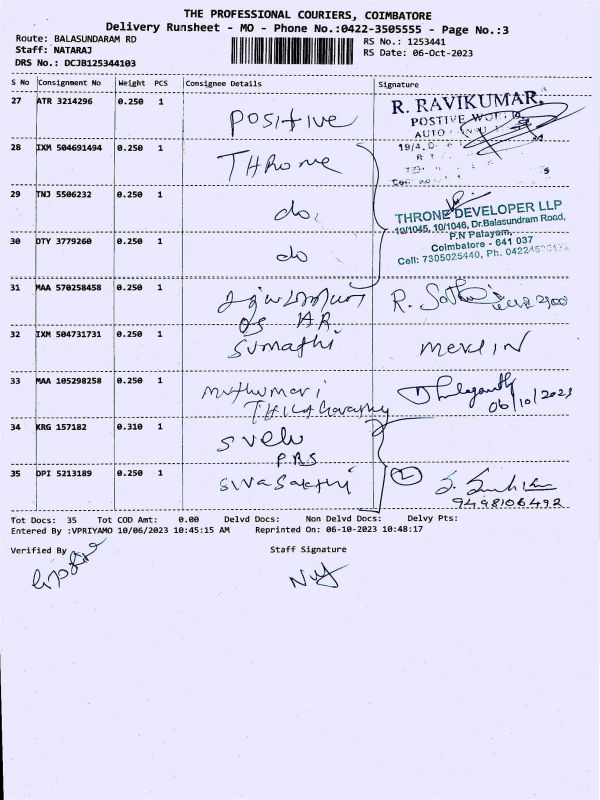 THE PROFESSIONAL COURIERS, COIMBATORE
Delivery Runsheet - MO - Phone No.:0422-3505555 - Page No.:3
Route: BALASUNDARAM RD
RS No.: 1253441
Staff: NATARAJ
RS Date: 06-Oct-2023
DRS No.: DCJB125344103
S No Consignment No Weight PCS Consignee Details Signature
27 ATR 3214296 0.250 1 Positive
R. RAVIKUMAR.
POSTIVE
AUTO
28 IXM 504691494 0.250 1 THRone
19/4,
29 TNJ 5506232 0.250 1 do,
THRONE DEVELOPER LLP
10/1045, 10/1046, Dr.Balasundram Road,
P.N Palayam,
30 DTY 3779260 0.250 1 do
Coimbatore - 641 037
Cell: 7305025440, Ph.
31 MAA 570258458 0.250 1
R.
AR.
32 IXM 504731731 0.250 1 Sumathi merlin
33 MAA 105298258 0.250 1 muthumari
06/10/2023
34 KRG 157182 0.310 1 S velu
PRS
35 DPI 5213189 0.250 1 Sivasakthi 2
9498106492
Tot Docs: 35 Tot COD Amt: 0.00 Delvd Docs: Non Delvd Docs: Delvy Pts:
Entered By :VPRIYAMO 10/06/2023 10:45:15 AM Reprinted On: 06-10-2023 10:48:17
Verified By Staff Signature